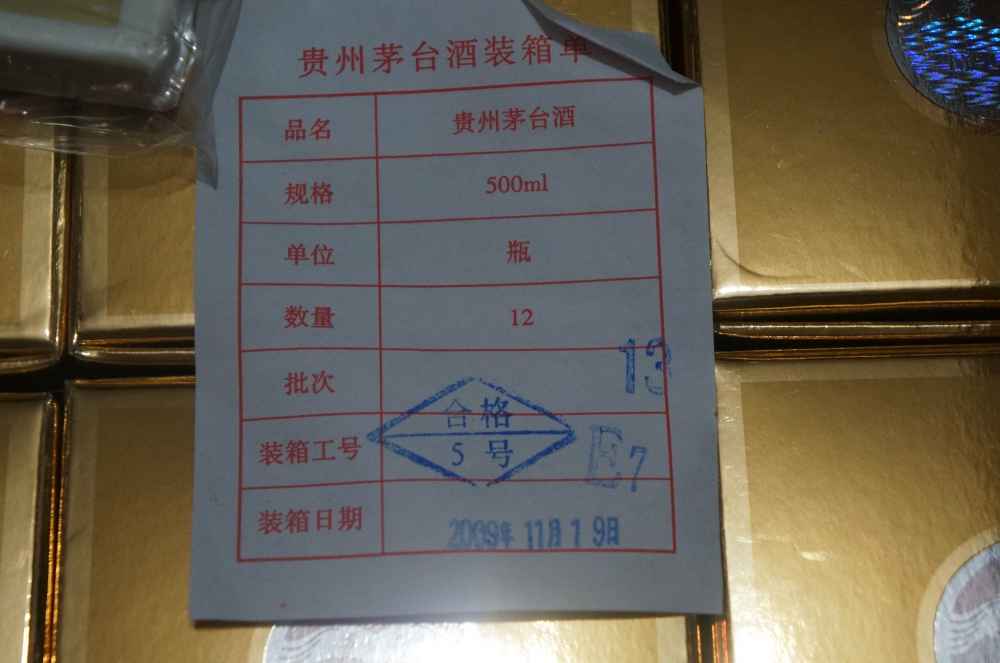 贵州茅台酒装箱单
品名 贵州茅台酒
规格 500ml
单位 瓶
数量 12
批次 13
装箱工号 合格 5号 E7
装箱日期 2009年11月19日